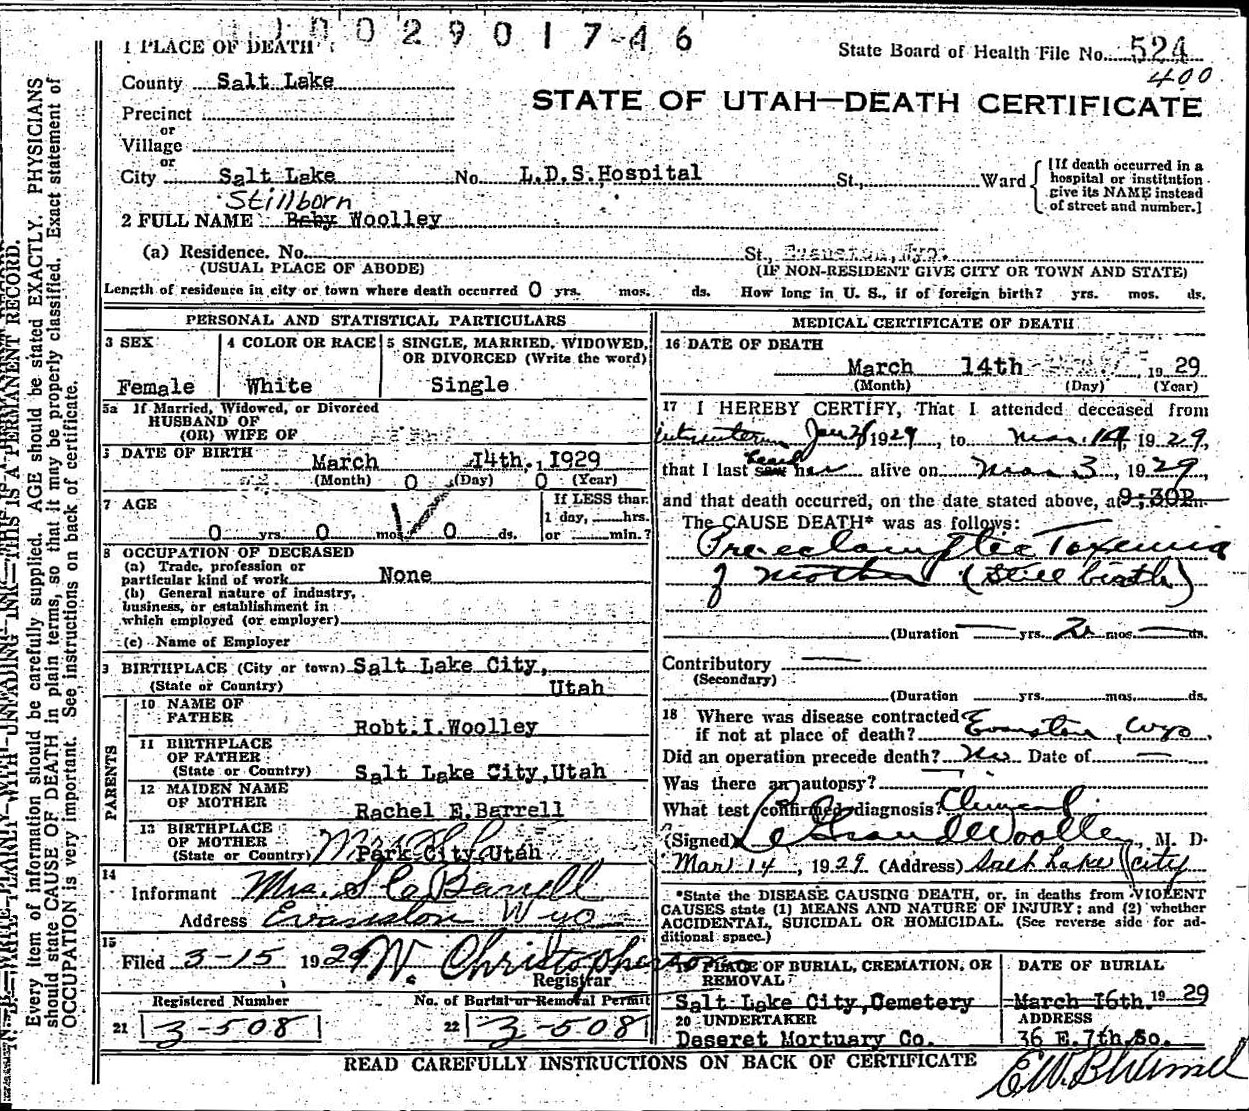 0 0 2 9 0 1 7-4 6
1 PLACE OF DEATH
State Board of Health File No. 524
400
County Salt Lake
STATE OF UTAH—DEATH CERTIFICATE
Precinct
or
Village
or
City Salt Lake No. L.D.S.Hospital St., Ward
[If death occurred in a
hospital or institution
give its NAME instead
of street and number.]
Stillborn
2 FULL NAME Baby Woolley
(a) Residence. No. St., Evanston, Wyo.
(USUAL PLACE OF ABODE) (IF NON-RESIDENT GIVE CITY OR TOWN AND STATE)
Length of residence in city or town where death occurred 0 yrs. mos. ds. How long in U. S., if of foreign birth? yrs. mos. ds.
PERSONAL AND STATISTICAL PARTICULARS
3 SEX
Female
4 COLOR OR RACE
White
5 SINGLE, MARRIED, WIDOWED,
OR DIVORCED (Write the word)
Single
5a If Married, Widowed, or Divorced
HUSBAND OF
(OR) WIFE OF
DATE OF BIRTH March 14th. 1929
(Month) 0 (Day) 0 (Year)
7 AGE
0 yrs. 0 mos. 0 ds.
If LESS than
1 day, hrs.
or min.?
8 OCCUPATION OF DECEASED
(a) Trade, profession or
particular kind of work None
(b) General nature of industry,
business, or establishment in
which employed (or employer)
(c) Name of Employer
9 BIRTHPLACE (City or town) Salt Lake City,
(State or Country) Utah
PARENTS
10 NAME OF
FATHER Robt.I.Woolley
11 BIRTHPLACE
OF FATHER
(State or Country) Salt Lake City,Utah
12 MAIDEN NAME
OF MOTHER Rachel E.Barrell
13 BIRTHPLACE
OF MOTHER
(State or Country) Park City,Utah
14
Informant Mrs. S C Barrell
Address Evanston Wyo
15
Filed 3-15 1929 W. Christopherson
Registrar
Registered Number No. of Burial or Removal Permit
21 3-508 22 3-508
MEDICAL CERTIFICATE OF DEATH
16 DATE OF DEATH
March 14th 1929
(Month) (Day) (Year)
17 I HEREBY CERTIFY, That I attended deceased from
Jan 1929, to Mar. 14, 1929,
that I last saw heard her alive on Mar 3, 1929,
and that death occurred, on the date stated above, at 9:30P m
The CAUSE DEATH* was as follows:
Pre-eclamptic Toxemia
of Mother (Still birth)
(Duration — yrs. 2 mos — ds.
Contributory —
(Secondary)
(Duration yrs. mos. ds.
18 Where was disease contracted
if not at place of death? Evanston, Wyo.
Did an operation precede death? No Date of —
Was there an autopsy? —
What test confirmed diagnosis? Clinical
(Signed) Le Grand Woolley, M. D.
Mar 14, 1929 (Address) Salt Lake City
*State the DISEASE CAUSING DEATH, or, in deaths from VIOLENT
CAUSES state (1) MEANS AND NATURE OF INJURY; and (2) whether
ACCIDENTAL, SUICIDAL OR HOMICIDAL. (See reverse side for ad-
ditional space.)
19 PLACE OF BURIAL, CREMATION, OR
REMOVAL
Salt Lake City,Cemetery
DATE OF BURIAL
March 16th. 1929
20 UNDERTAKER
Deseret Mortuary Co.
ADDRESS
36 E.7th.So.
READ CAREFULLY INSTRUCTIONS ON BACK OF CERTIFICATE
N. B.—WRITE PLAINLY WITH UNFADING INK—THIS IS A PERMANENT RECORD.
Every item of information should be carefully supplied. AGE should be stated EXACTLY. PHYSICIANS
should state CAUSE OF DEATH in plain terms, so that it may be properly classified. Exact statement of
OCCUPATION is very important. See instructions on back of certificate.